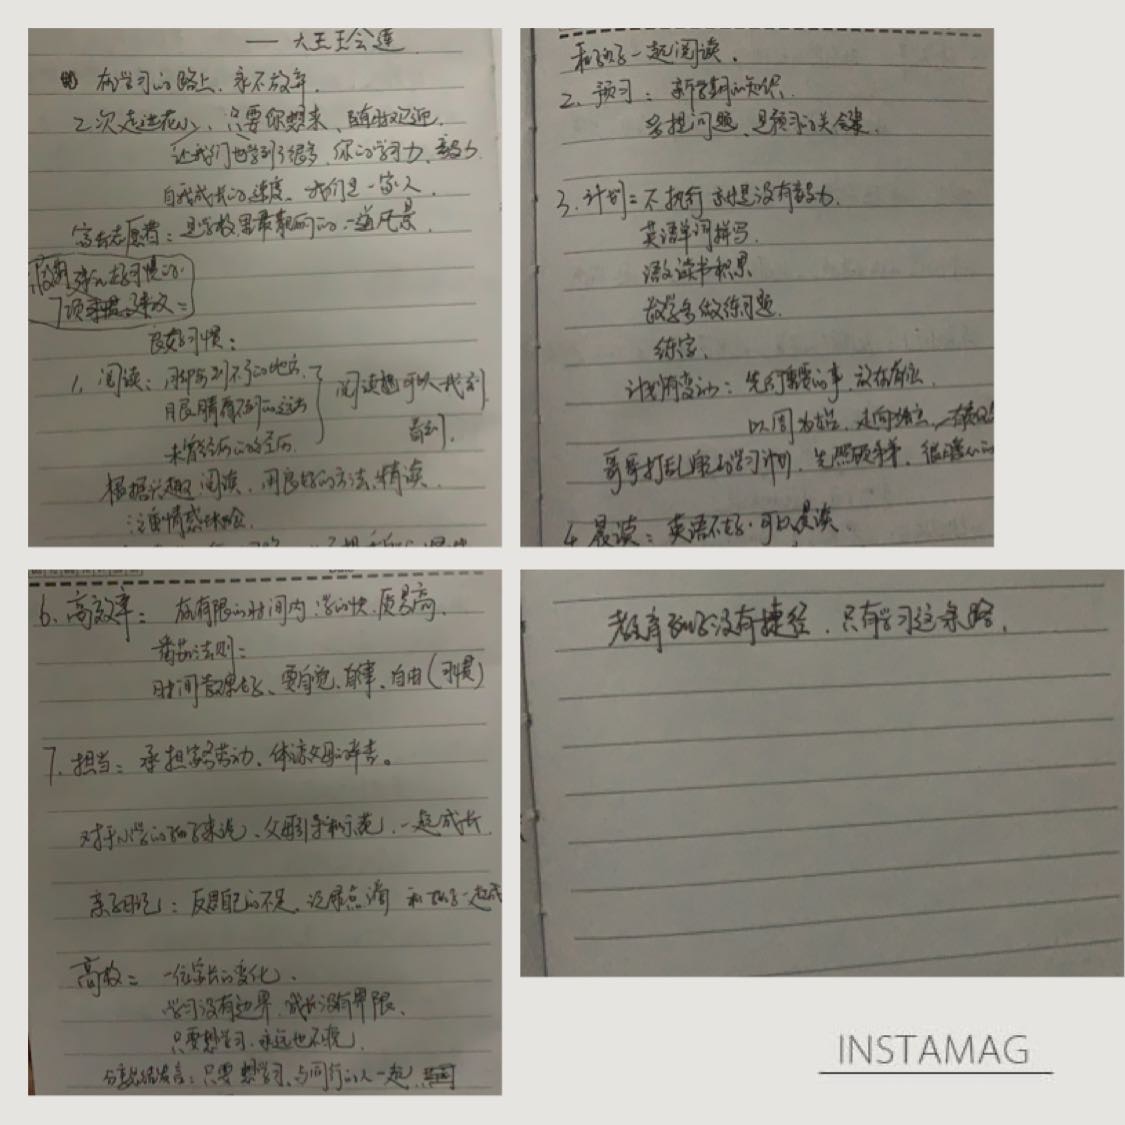 —— 大王王会莲
在学习的路上，永不放弃。
2次走进花儿、只要你想来，随时欢迎。
让我们也学到了很多，你的学习力、毅力
自我成长的速度，我们是一家人。
家长志愿者：是学校里最靓丽的一道风景。
假期 建立好习惯的
7项 建议：
良好习惯：
1. 阅读：用脚步到不了的地方，
眼睛看不到的远方
未曾经历的经历
阅读都可以找到
看到。
根据兴趣阅读，用良好的方法、精读
注重情感体验
和孩子一起阅读。
2. 预习：新学期的知识。
多提问题，是预习的关键。
3. 计划：不执行 就是没有毅力。
英语单词拼写。
语文读书积累
数学多做练习题。
练字。
计划有变动：先把重要的事，放在前。
以周为单位，
哥哥打乱 的学习计划，先照顾弟弟，很暖心的
4. 晨读：英语不好，可以晨读。
6. 高效率：在有限的时间内，学的快，质量高。
番茄法则：
时间管理好、要自觉、自律、自由（习惯）
7. 担当：承担家务劳动，体谅父母的辛苦。
对于小学的孩子来说、父母引导和示范，一起成长
亲子日记：反思自己的不足，记录点滴 和孩子一起成
高敏： 一位家长的变化。
学习没有边界，成长没有界限。
只要想学习，永远也不晚
分享 发言：只要想学习，与同行的人一起
教育孩子没有捷径，只有学习这条路。
INSTAMAG